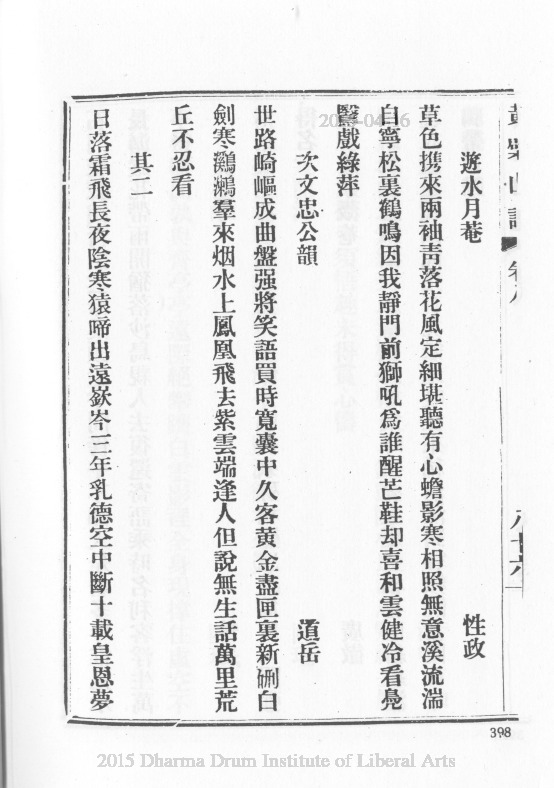 遊水月菴
性政
草色携來兩袖靑落花風定細堪聽有心蟾影寒相照無意溪流湍
自寧松裏鶴鳴因我靜門前獅吼爲誰醒芒鞋却喜和雲健冷看鳧
鷖戲綠萍
次文忠公韻
道岳
世路崎嶇成曲盤强將笑語買時寬囊中久客黄金盡匣裏新硎白
劍寒鸂鶒羣來烟水上鳳凰飛去紫雲端逢人但說無生話萬里荒
丘不忍看
其二
日落霜飛長夜陰寒猿啼出遠嶔岑三年乳德空中斷十載皇恩夢
398
2015 Dharma Drum Institute of Liberal Arts